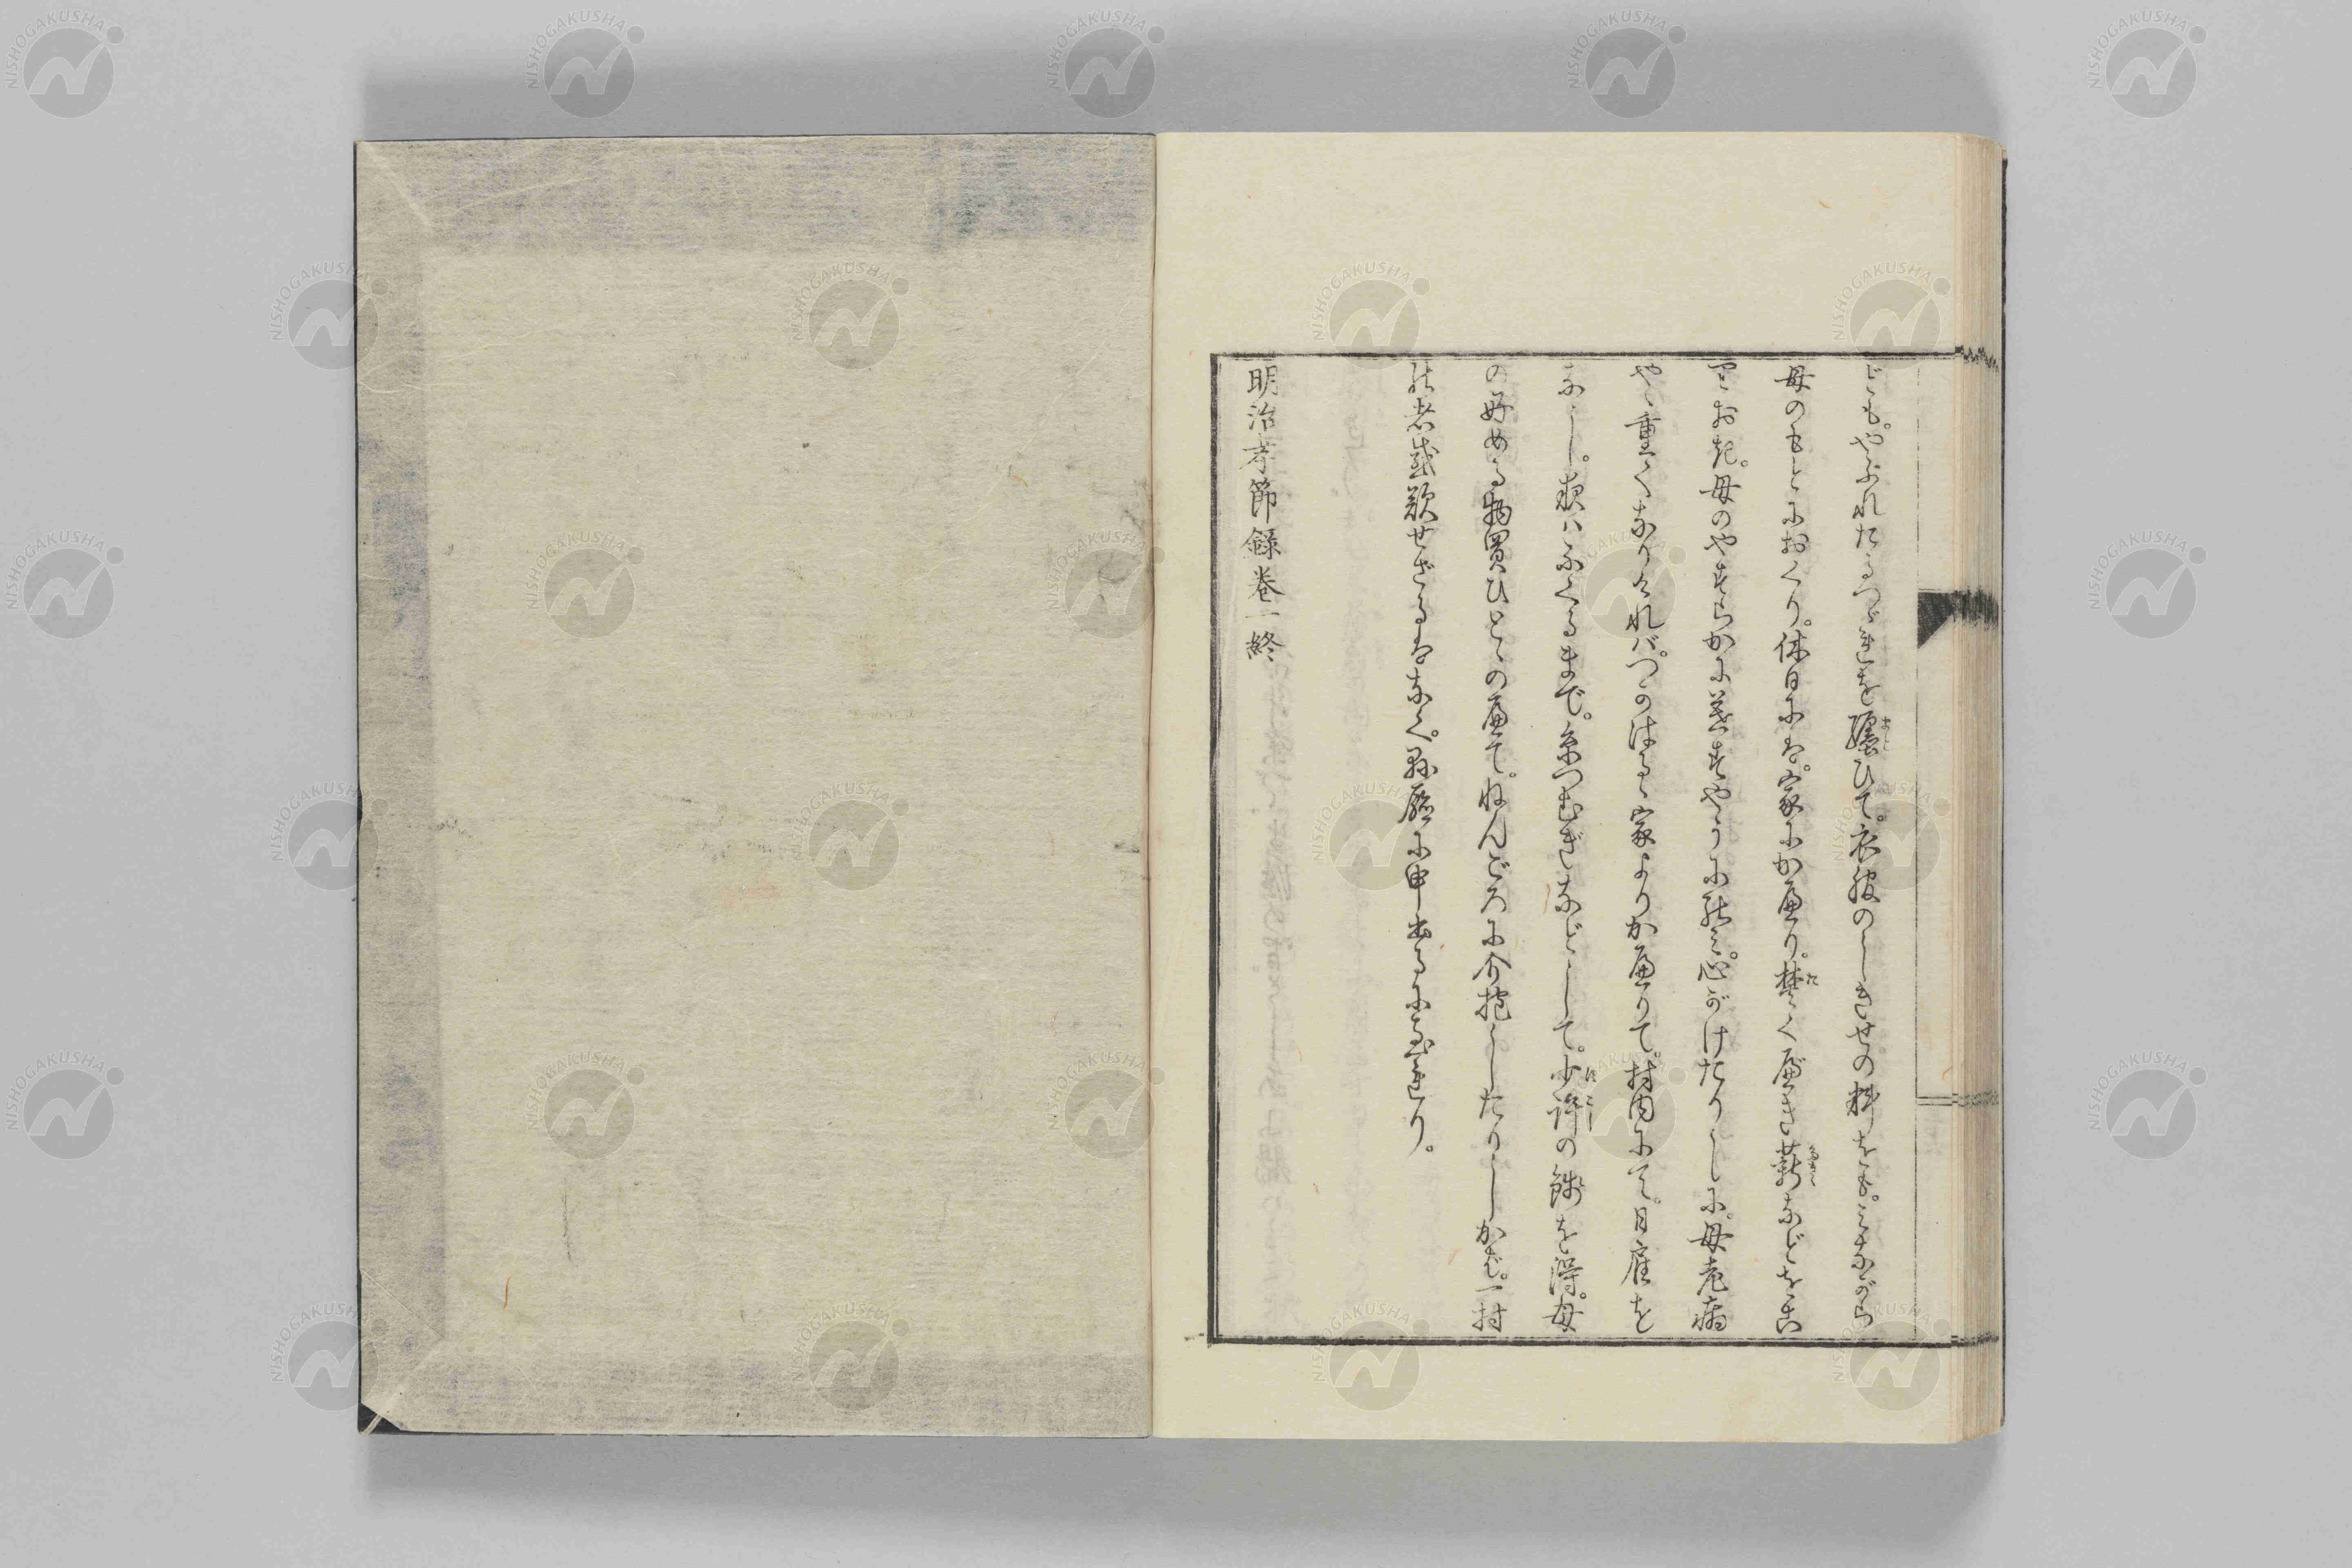 ども。やぶれたるつゞれを纒ひて。衣服のしきせの料をも。みながら
母のもとにおくり。休日には。家にかへり。焚くべき薪などをこ
りおき。母のやすらかに暮すやうにのミ。心がけたりしに。母老病
やゝ重くなりけれバ。つかはるゝ家よりかへりて。村内にて。日雇を
なし。夜ハふくるまで。糸つむぎなどして。少許の錢を得。母
の好める物買ひとゝのへて。ねんごろに介抱したりしかば。一村
の者感歎せざるはなく。縣廳に申出るに至れり。
明治孝節録卷一終
NISHOGAKUSHA